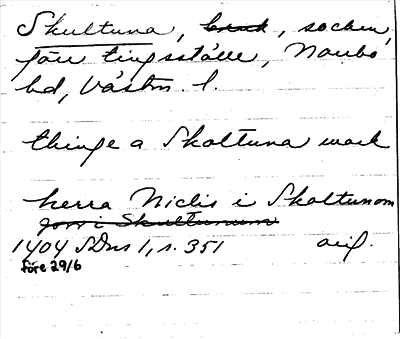 Skultuna, bruk, socken,
förr tingsställe, Norrbo
hd, Västm. l.
thinge a Skoltuna wark
herra Niclis i Skoltunom
Skultunum
1404 SDns 1, s. 351 orig.
före 29/6